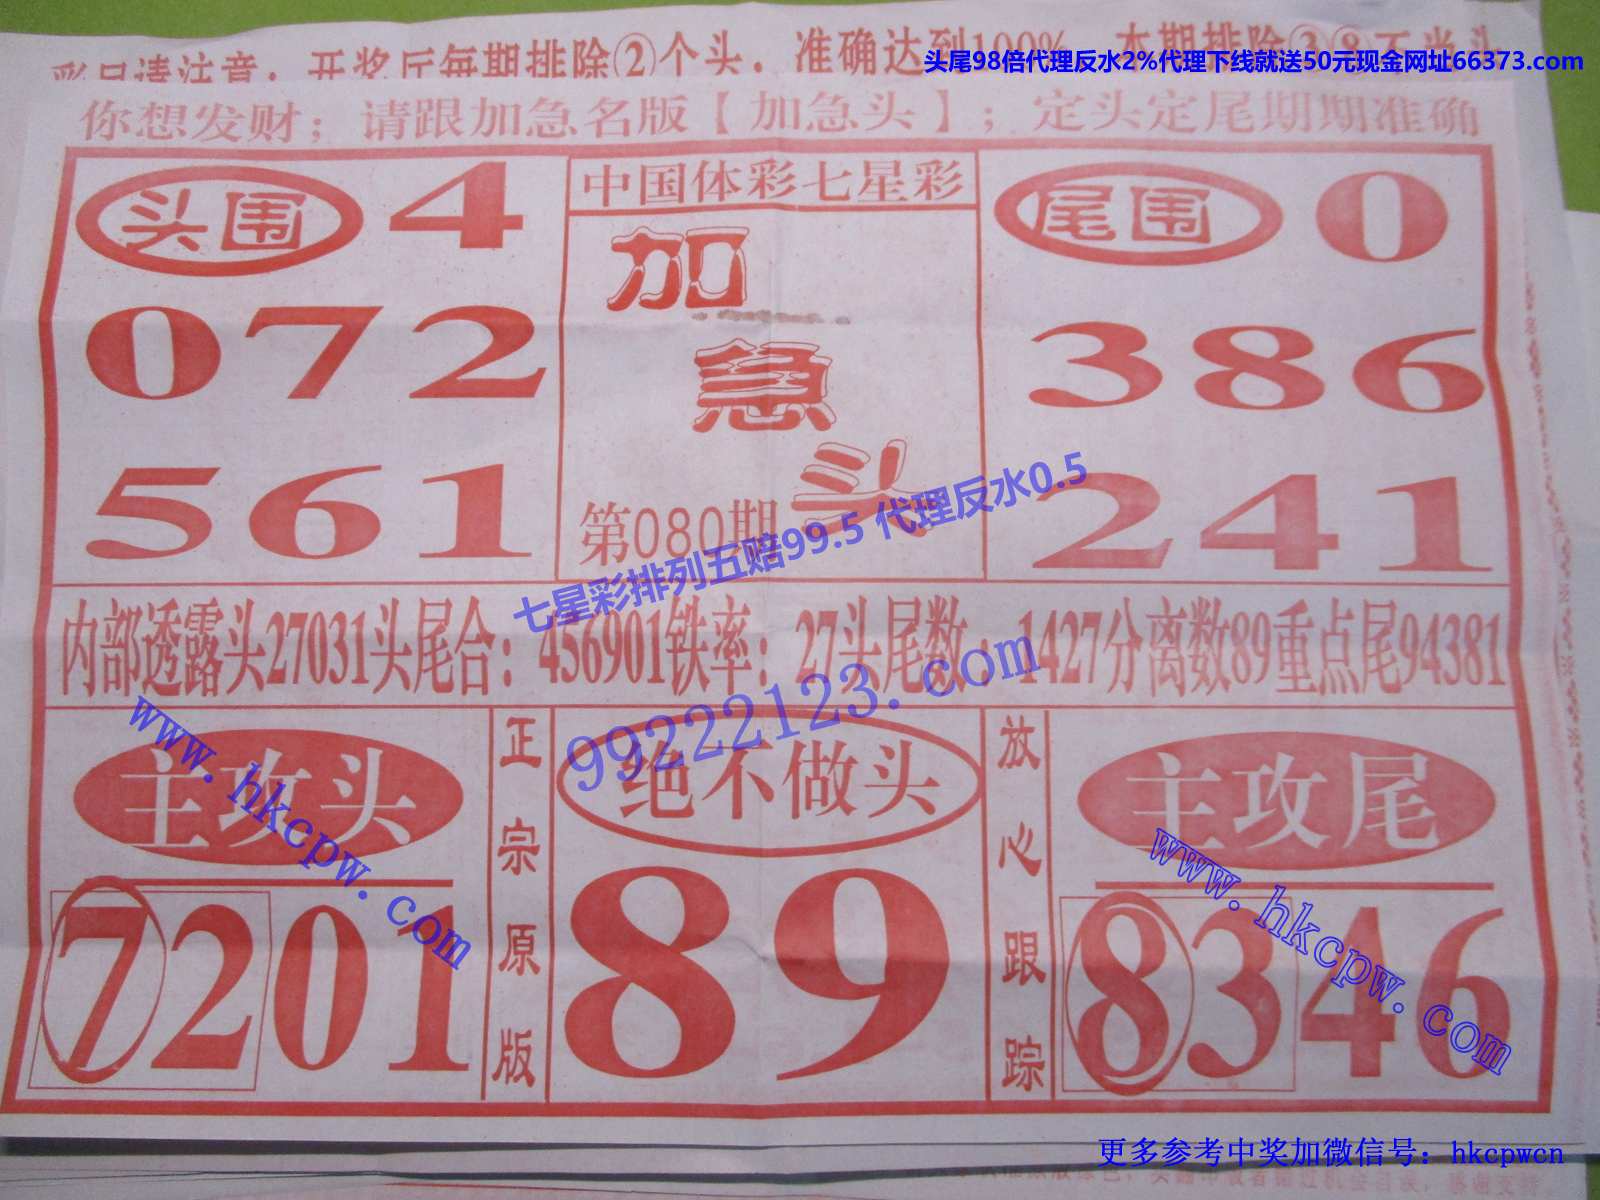 彩民请注意：开奖厅每期排除②个头，准确达到100%
头尾98倍代理反水2%代理下线就送50元现金网址66373.com
你想发财；请跟加急名版【加急头】；定头定尾期期准确
头围 4
072
561
中国体彩七星彩
加
急
头
第080期
尾围 0
386
241
七星彩排列五赔99.5 代理反水0.5
内部透露头27031头尾合：456901铁率：27头尾数：1427分离数89重点尾94381
99222123.com
www.hkcpw.com
主攻头
7201
正宗原版
绝不做头
89
放心跟踪
主攻尾
8346
www.hkcpw.com
更多参考中奖加微信号：hkcpwcn